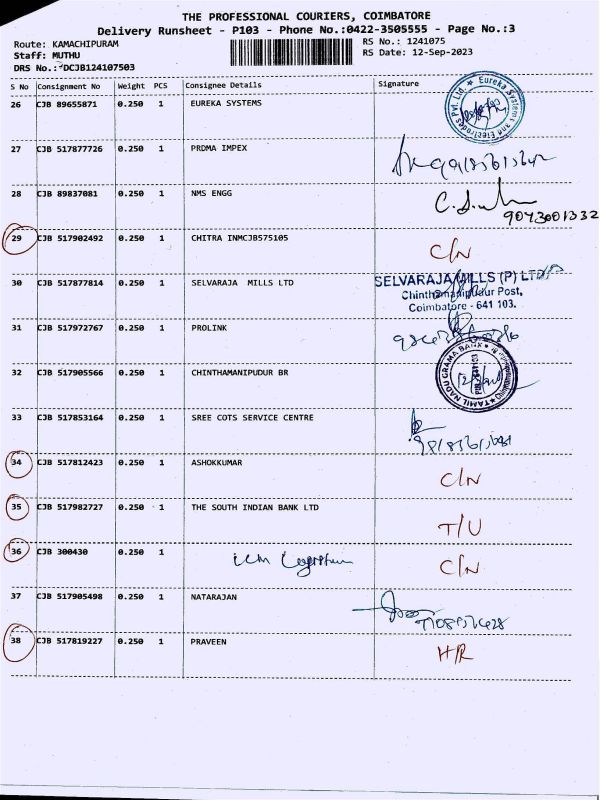 THE PROFESSIONAL COURIERS, COIMBATORE
Delivery Runsheet - P103 - Phone No.:0422-3505555 - Page No.:3
Route: KAMACHIPURAM
Staff: MUTHU
DRS No.: DCJB124107503
RS No.: 1241075
RS Date: 12-Sep-2023
S No Consignment No Weight PCS Consignee Details Signature
26 CJB 89655871 0.250 1 EUREKA SYSTEMS
Eureka Systems and Electrodes Pvt. Ltd.
27 CJB 517877726 0.250 1 PRDMA IMPEX
28 CJB 89837081 0.250 1 NMS ENGG
9073001332
29 CJB 517902492 0.250 1 CHITRA INMCJB575105 C/N
30 CJB 517877814 0.250 1 SELVARAJA MILLS LTD
SELVARAJA MILLS (P) LTD
Chinthamanipudur Post,
Coimbatore - 641 103.
31 CJB 517972767 0.250 1 PROLINK
32 CJB 517905566 0.250 1 CHINTHAMANIPUDUR BR
TAMIL NADU GRAMA BANK
33 CJB 517853164 0.250 1 SREE COTS SERVICE CENTRE
34 CJB 517812423 0.250 1 ASHOKKUMAR C/N
35 CJB 517982727 0.250 1 THE SOUTH INDIAN BANK LTD T/U
36 CJB 300430 0.250 1 C/N
37 CJB 517905498 0.250 1 NATARAJAN
38 CJB 517819227 0.250 1 PRAVEEN H/R